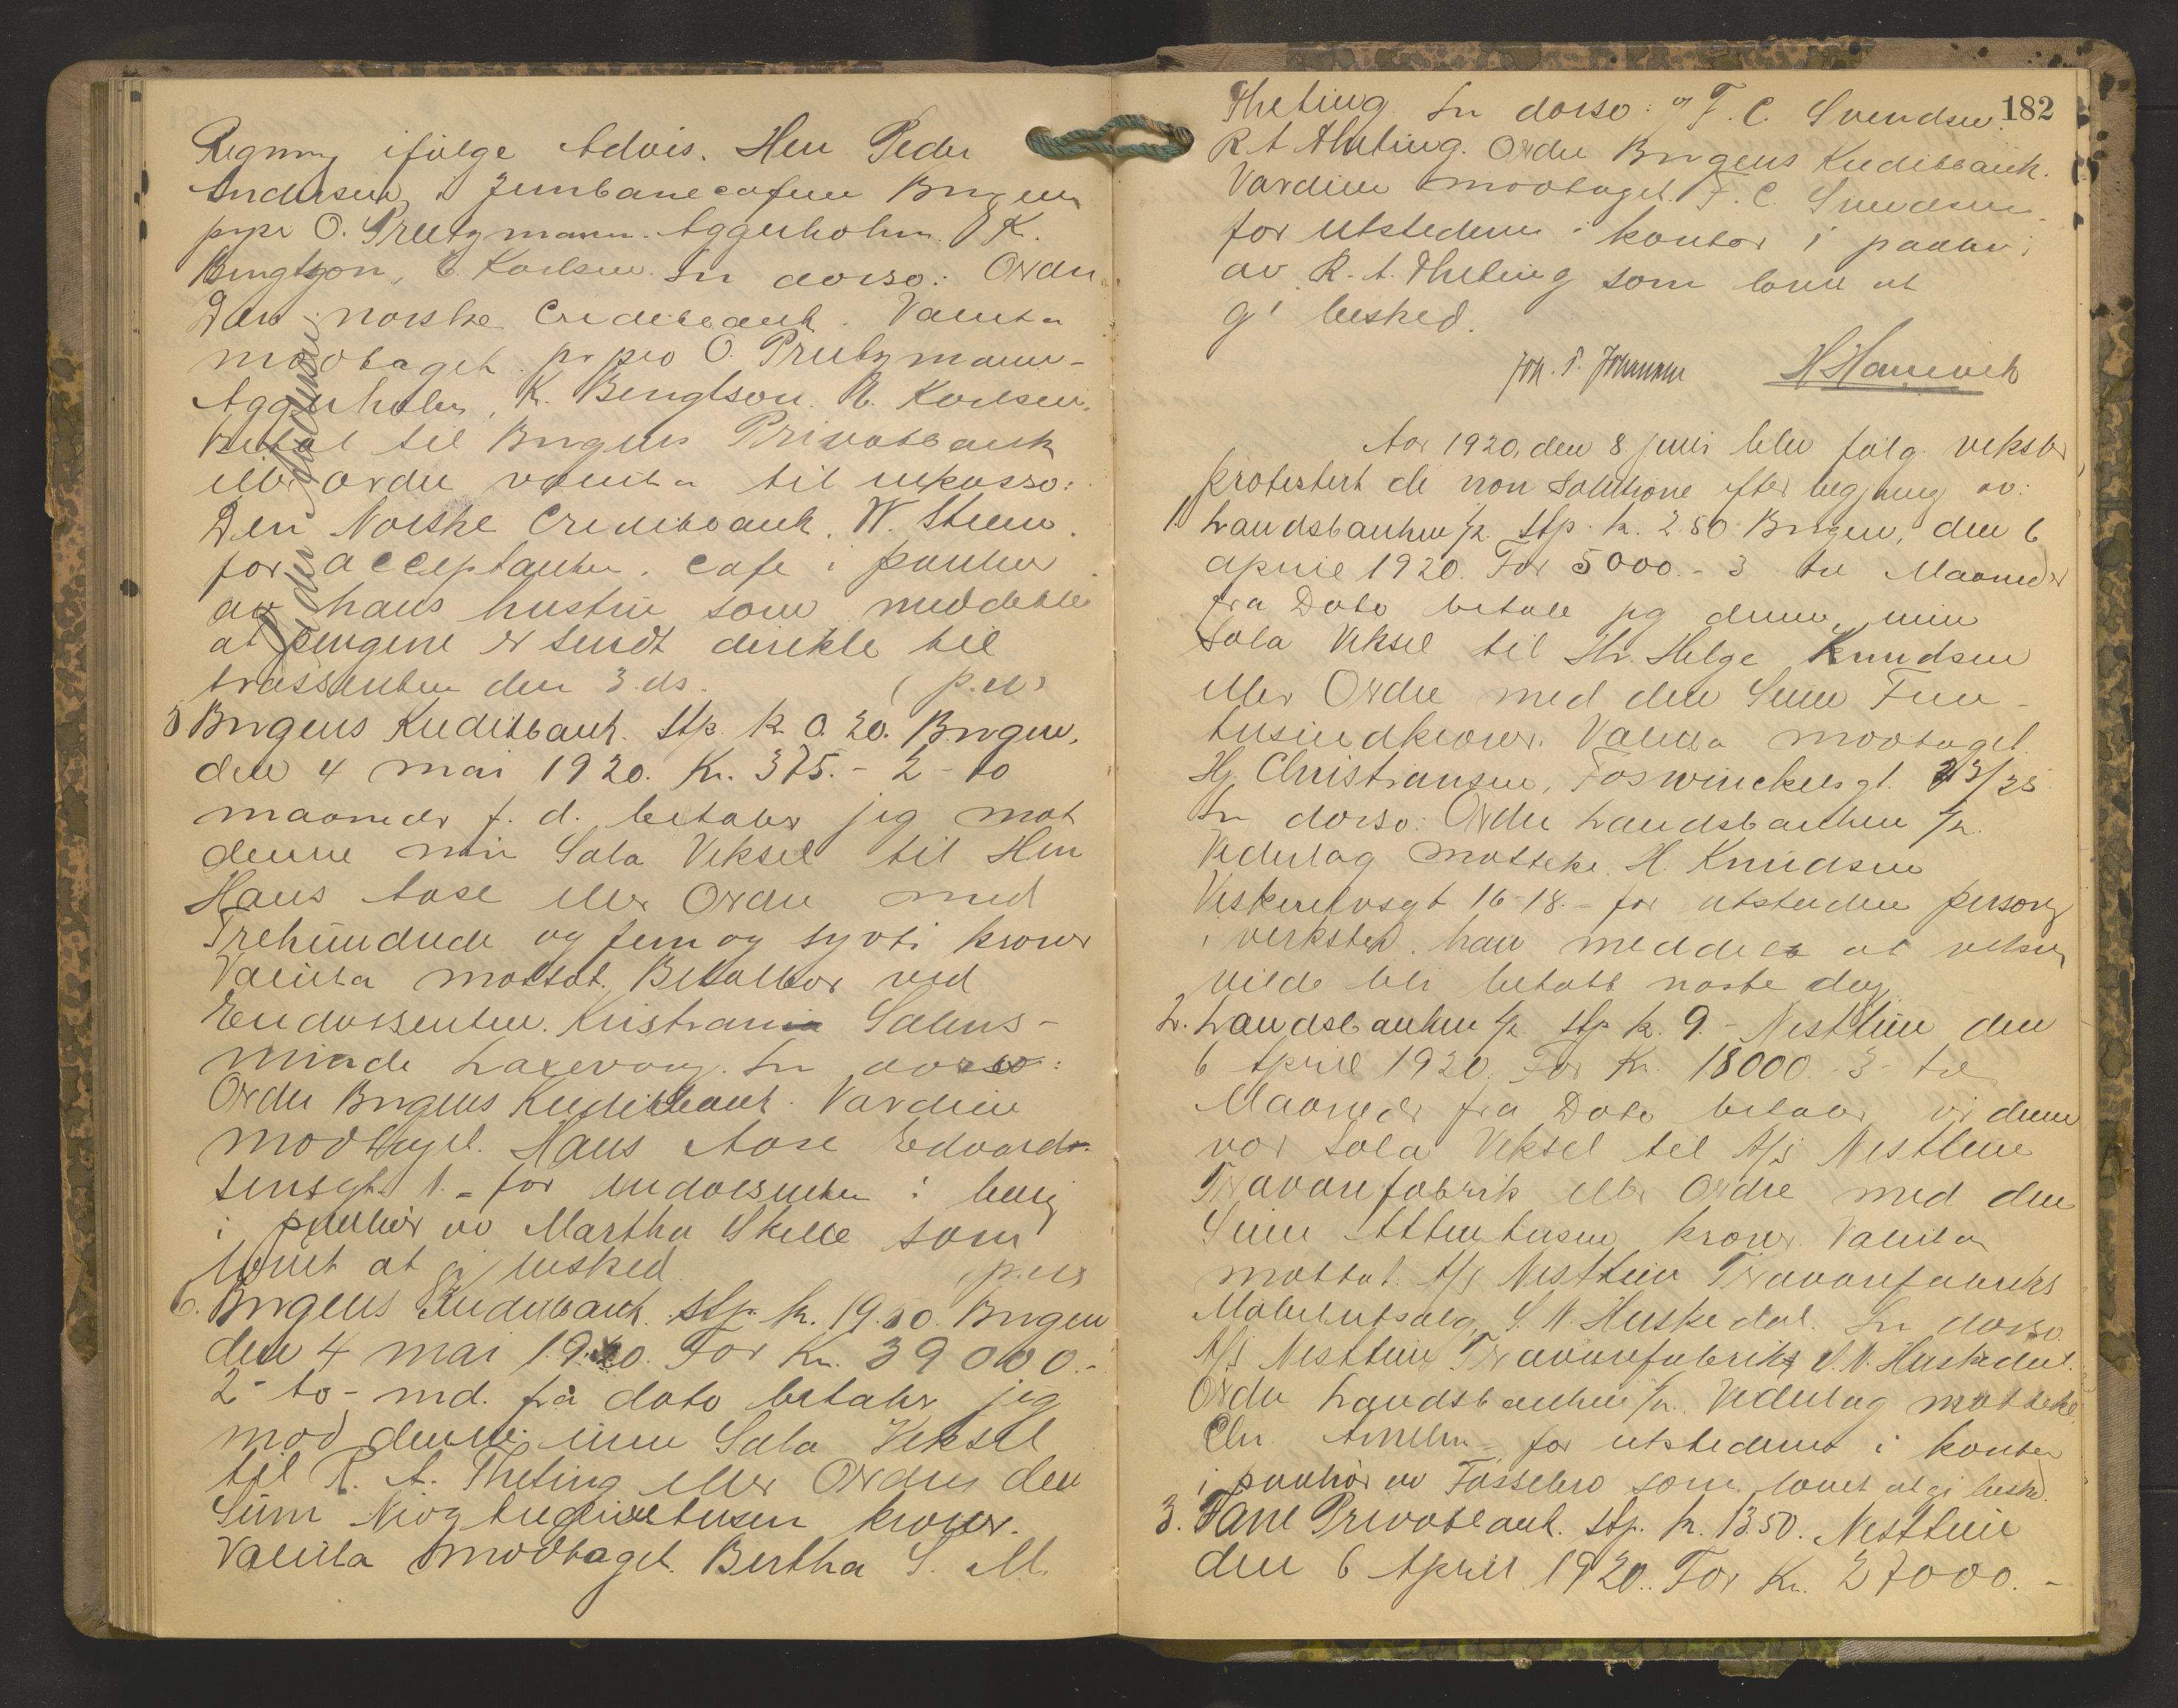 Regning ifølge Advis. Herr Peder
Andersen, Jernbanecafeen Bergen
pr pr O. Preutzmann-Aggerholm. K.
Bengtson, E. Karlsen. In dorso: Ordre
Den norske Creditbank. Valuta
modtaget pr pro O. Preutzmann-
Aggerholm, K. Bengtson. E. Karlsen.
Betal til Bergens Privatbank
eller ordre valuta til inkasso:
Den Norske Creditbank. W. Steen.
for acceptanten. Cafe i paahør
av hans hustru som meddelte
at pengene er sendt direkte til
trassenten den 3. ds. (p.u)
5 Bergens Kreditbank. Stp. kr. 0.20. Bergen,
den 4 mai 1920. Kr. 375.- 2 - to
maaneder f. d. betaler jeg mot
denne min Sola Veksel til Herr
Hans Aase eller Ordre med
Trehundrede og fem og sytti kroner
Valuta mottat. Betalbar ved
Endossenten. Kristiania Salens-
minde Laxevaag. In dorso:
Ordre Bergens Kreditbank. Værdien
modtaget. Hans Aase Edvard-
sensgt. 1. - for endossenten i bolig
i paahør av Martha Skille som
lovet at gi besked. (p.u)
6. Bergens Kreditbank. Stp. kr. 19.50. Bergen
den 4 mai 1920. For Kr. 39000.-
2 - to - md. fra dato betaler jeg
mod denne min Sola Veksel
til R. A. Theting eller Ordre den
Sum Niogtredivetusen kroner.
Valuta modtaget. Bertha S. M.
182
Theting. In dorso: F. C. Svendsen.
R A Theting. Ordre Bergens Kreditbank.
Værdien modtaget. F. C. Svendsen.
for utstederen i kontor i paahør
av R. A. Theting som lovet at
gi besked.
Joh. P. Johannesen H Hannevik
Aar 1920, den 8. juli blev følg. veksler
protestert de non solutione efter begjæring av:
1) Landsbanken A/S. Stp. kr. 2.50. Bergen, den 6
april 1920. For 5000.- 3 tre Maaneder
fra Dato betaler jeg denne min
Sola Veksel til Hr. Helge Knudsen
eller Ordre med den Sum Fem-
tusindkroner. Valuta modtaget.
Hj. Christiansen, Foswinckelsgt. 23/25
In dorso: Ordre Landsbanken A/S.
Vederlag motteke. H. Knudsen
Veskerelvsgt 16-18.- for utstederen personlig
i verksted. han meddelte at vekselen
vilde bli betalt næste dag.
2. Landsbanken A/S Stp kr. 9.- Nesttun den
6 April 1920. For Kr. 18000.- 3 - tre
Maaneder fra Dato betaler vi denne
vor Sola Veksel til A/S Nesttun
Trævarefabrik eller Ordre med den
Sum Attentusen kroner. Valuta
mottat. A/S Nesttun Trævarefabriks
Møbelutsalg, S. N. Huskedal. In dorso
A/S Nesttun Trævarefabrikk S. N. Huskedal.
Ordre Landsbanken A/S. Vederlag motteke.
Chr. Amelen - for utstederen i kontor
i paahør av Fossebro som lovet at gi besked.
3. Fane Privatbank. Stp. kr. 13.50. Nesttun
den 6 April 1920. For Kr. 27000.-